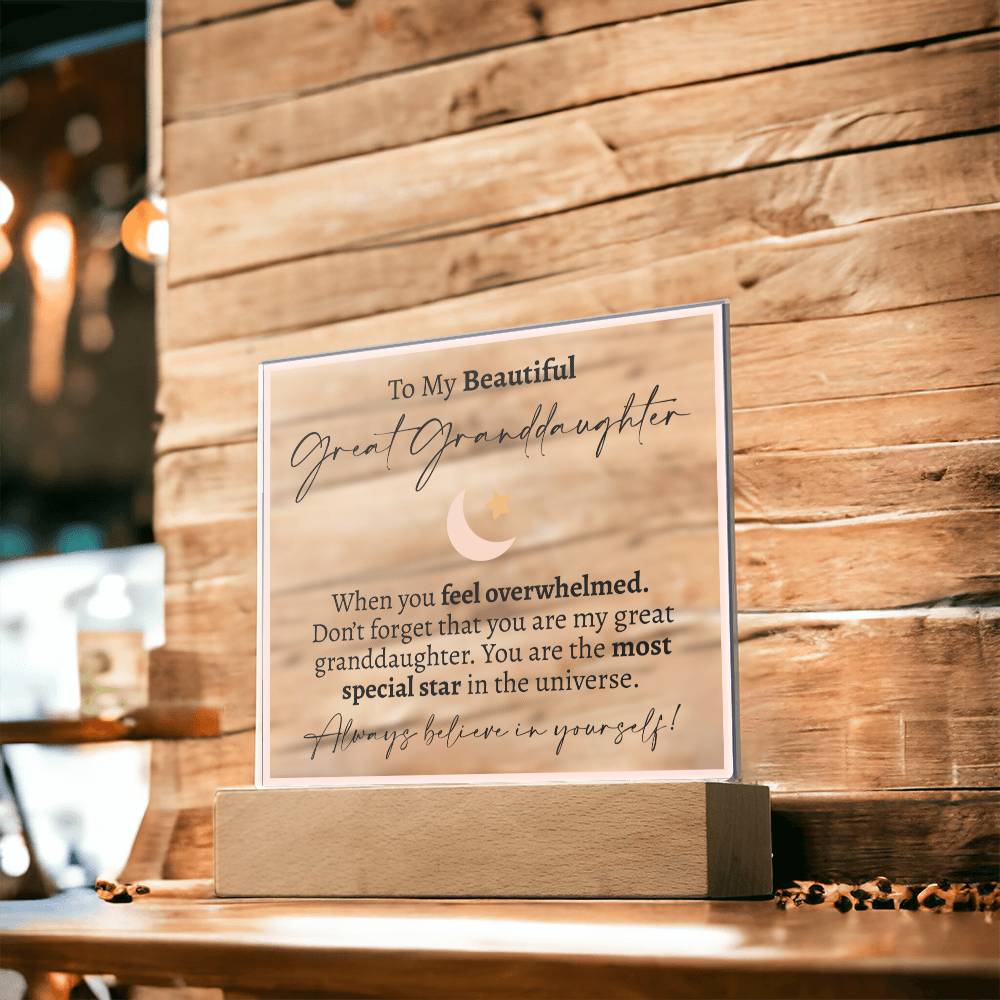 To My Beautiful
Great Granddaughter
When you feel overwhelmed.
Don't forget that you are my great
granddaughter. You are the most
special star in the universe.
Always believe in yourself!